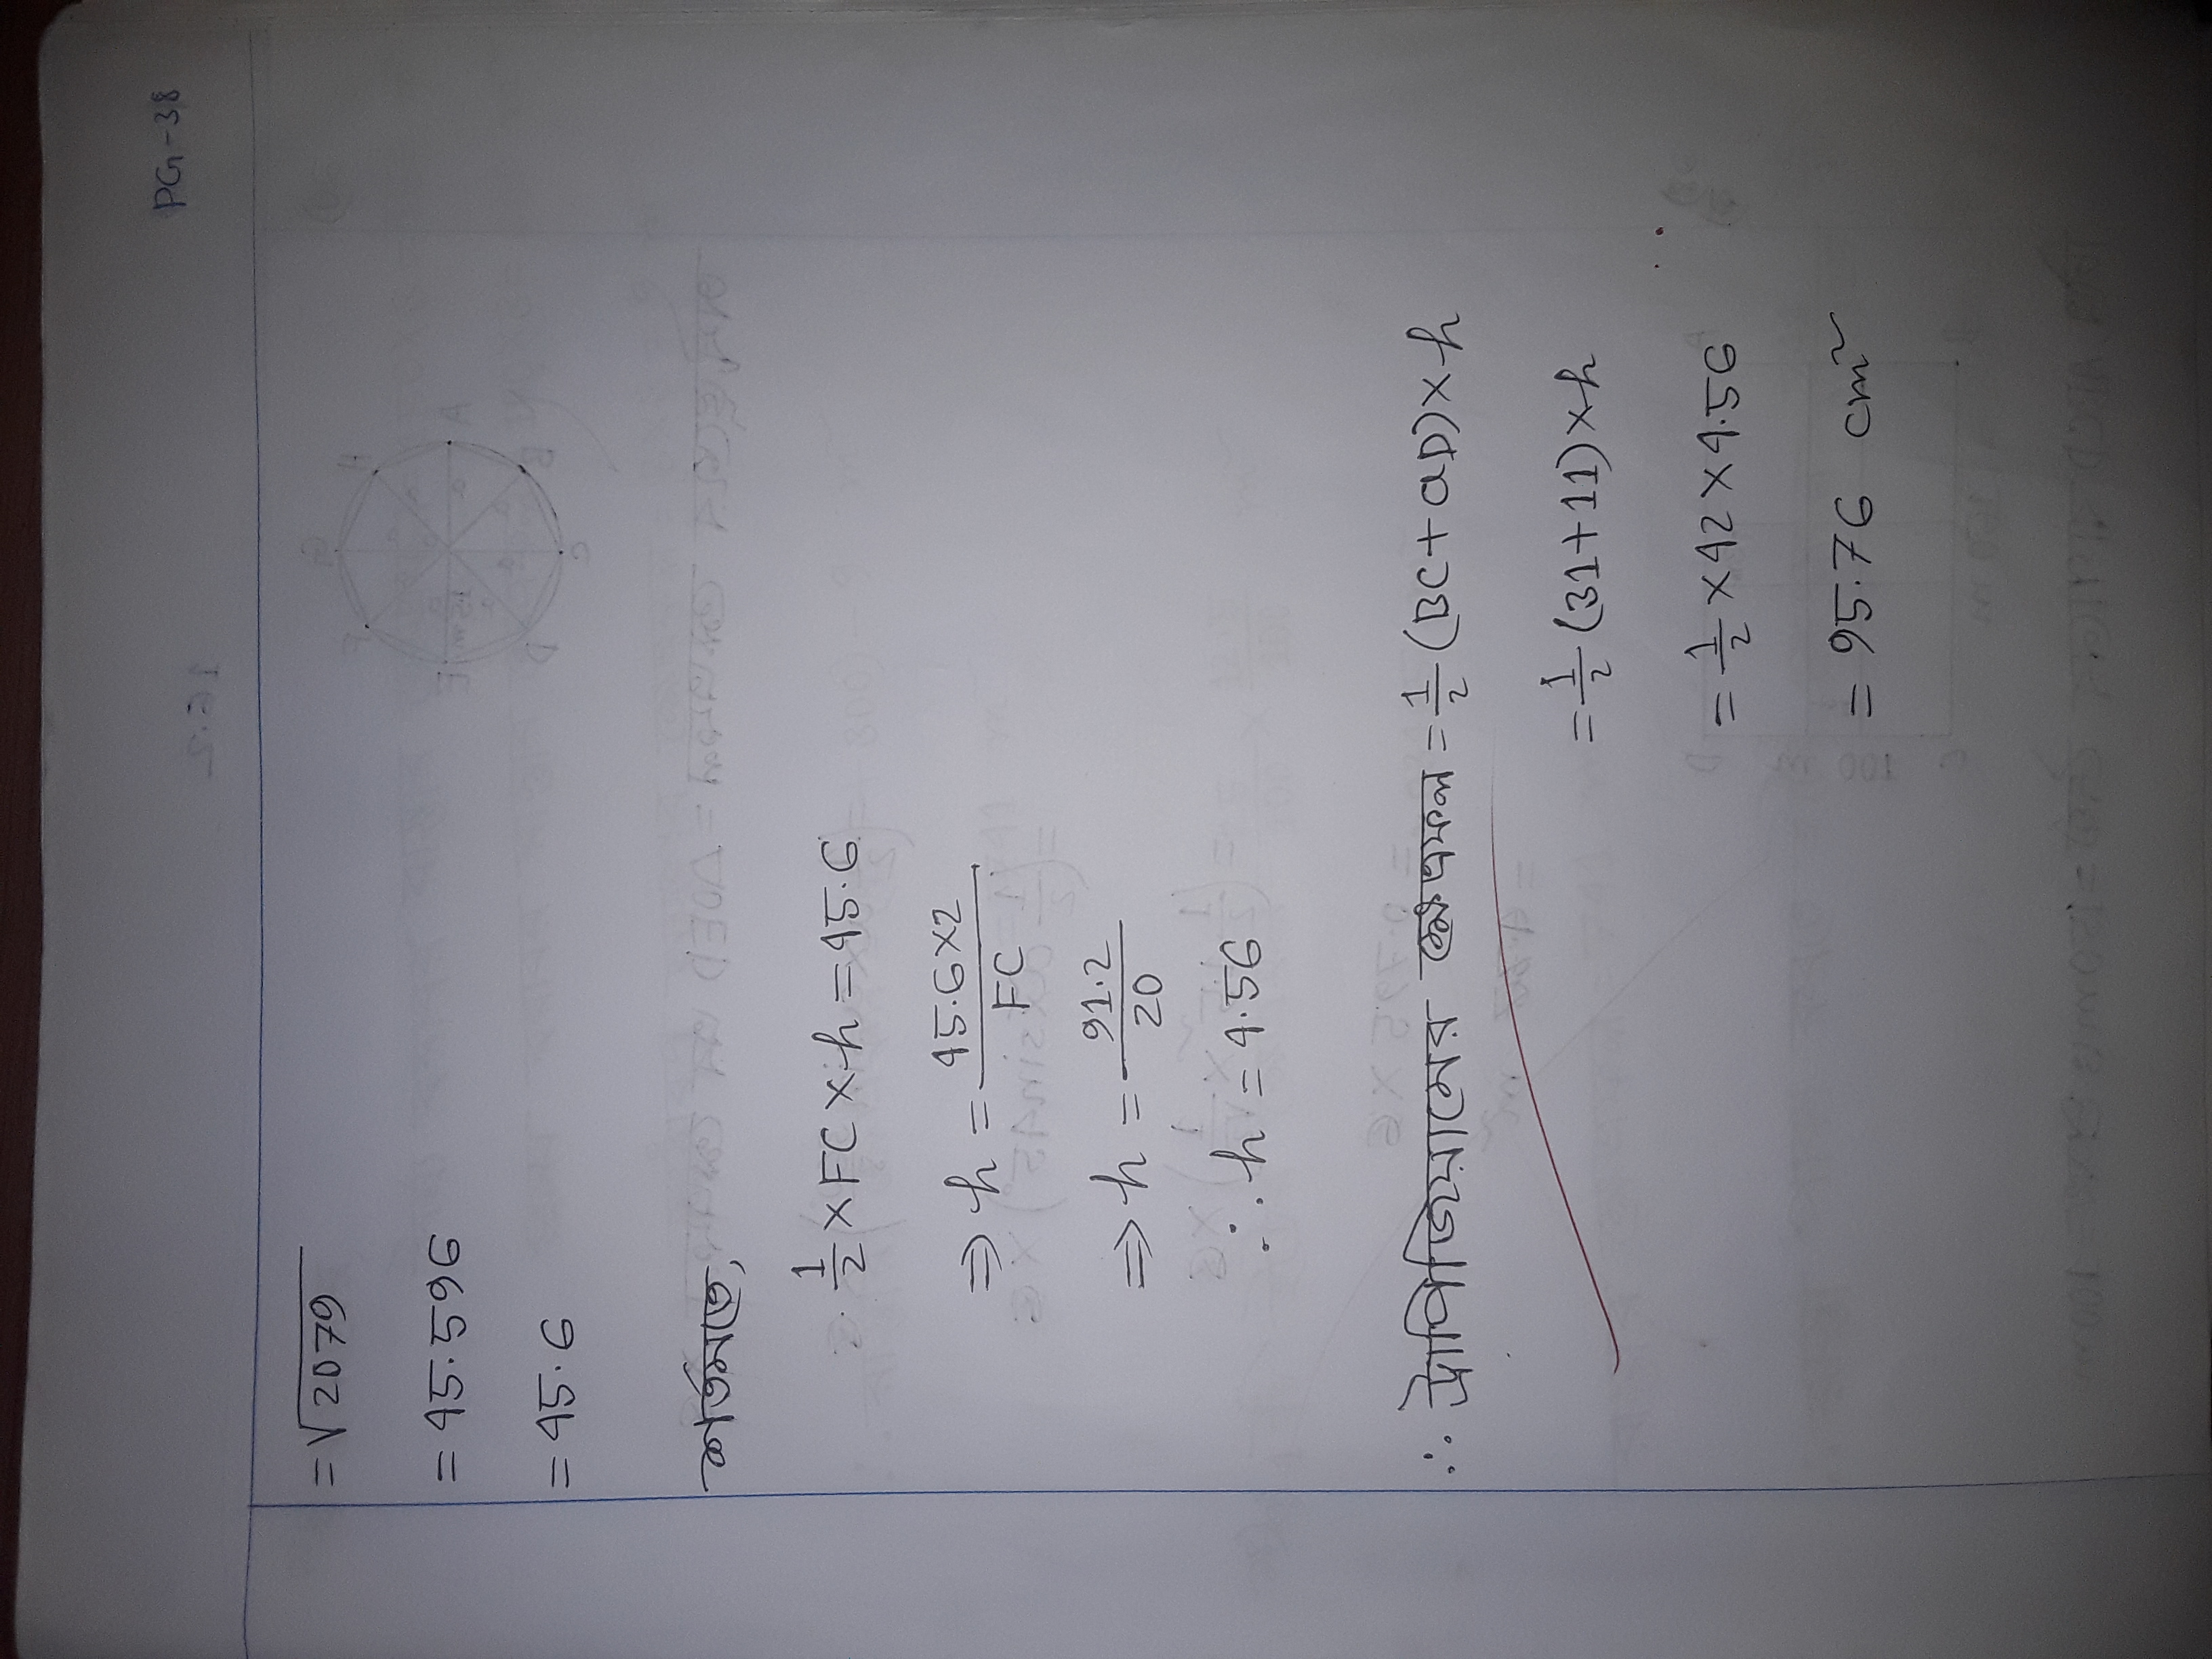 PG-38
= √2079
= 45.596
= 45.6
শর্তমতে,
1/2 × FC × h = 45.6
⇒ h = 45.6×2/FC
⇒ h = 91.2/20
∴ h = 4.56
∴ ট্রাপিজিয়ামের ক্ষেত্রফল = 1/2 (BC + aD) × h
= 1/2 (31+11) × h
= 1/2 × 42 × 4.56
= 95.76 cm²